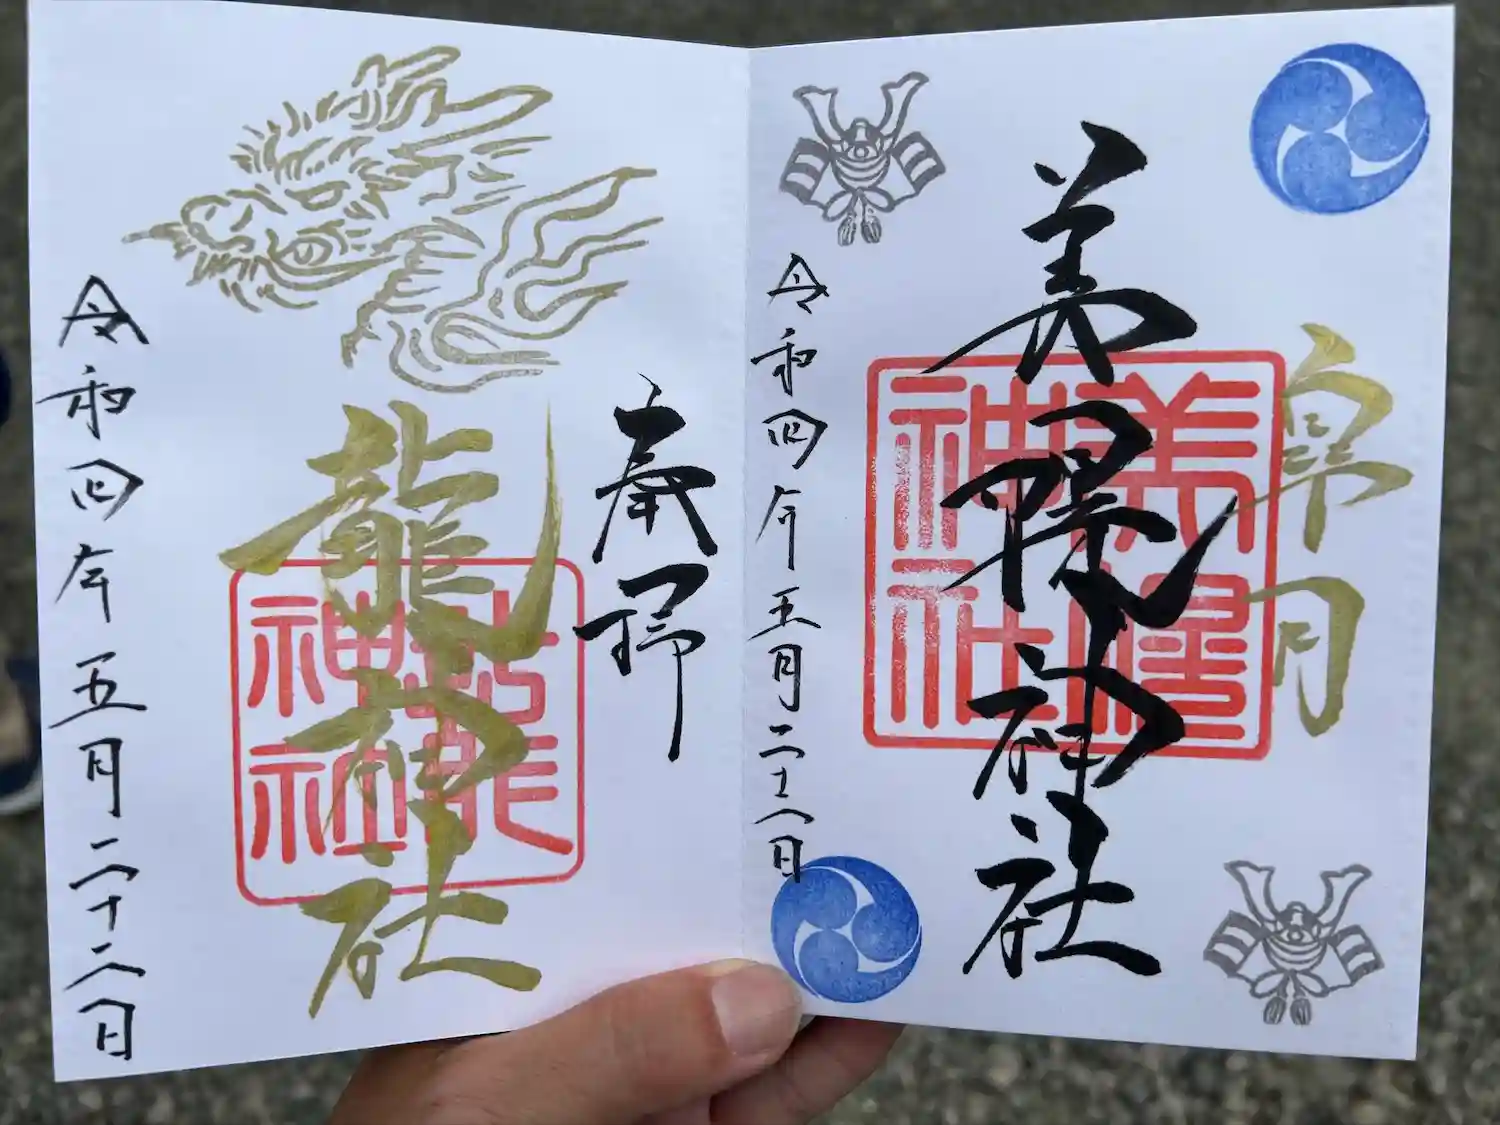 皐月
美幌神社
美幌神社
令和四年五月二十八日
奉拝
龍神社
龍神社
令和四年五月二十八日